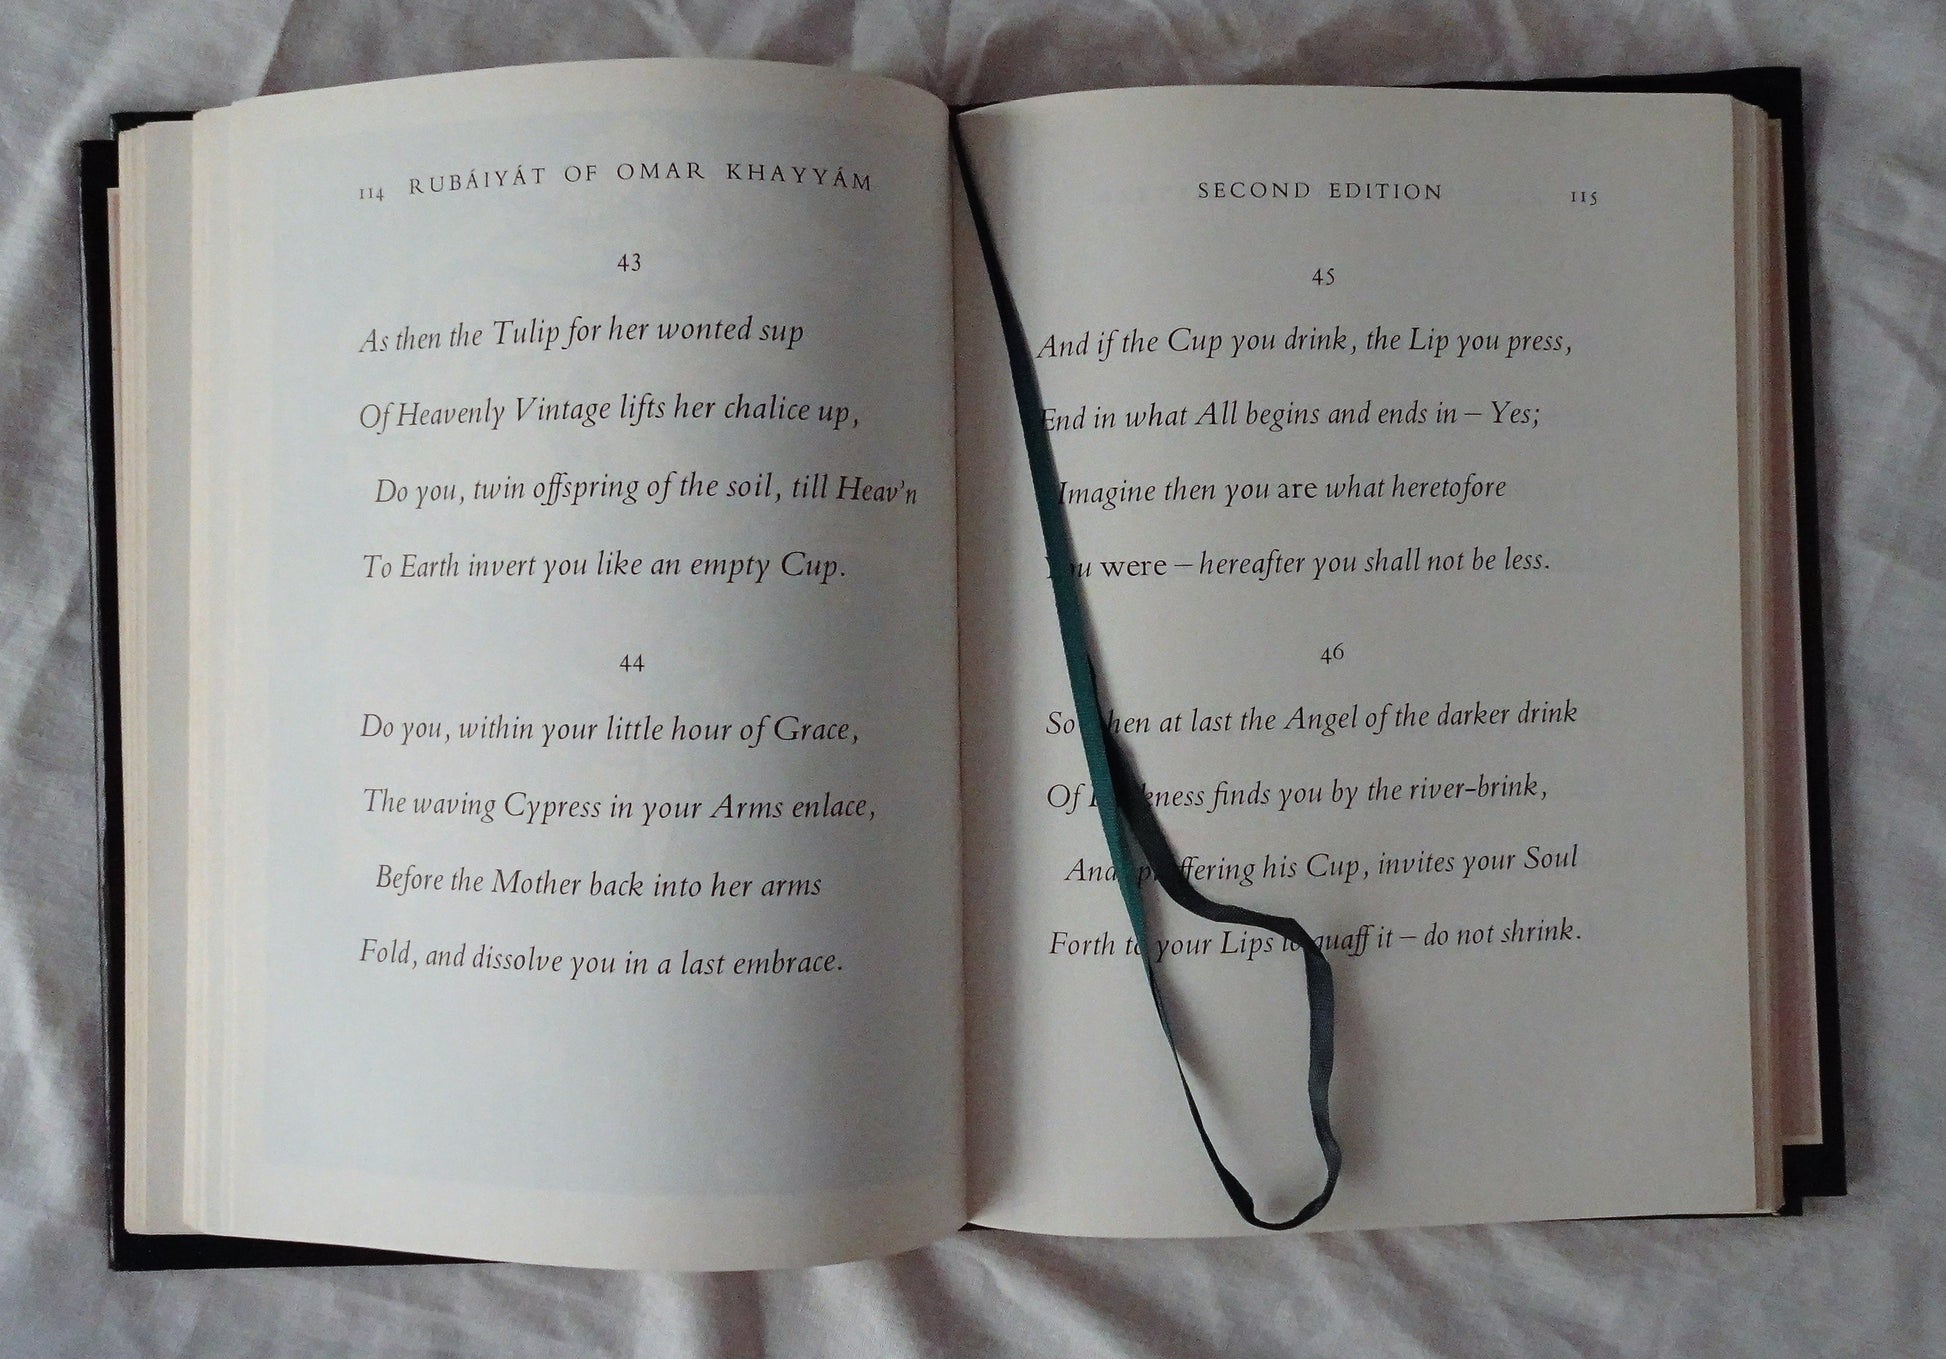 114 RUBÁIYÁT OF OMAR KHAYYÁM
43
As then the Tulip for her wonted sup
Of Heavenly Vintage lifts her chalice up,
Do you, twin offspring of the soil, till Heav'n
To Earth invert you like an empty Cup.
44
Do you, within your little hour of Grace,
The waving Cypress in your Arms enlace,
Before the Mother back into her arms
Fold, and dissolve you in a last embrace.
SECOND EDITION 115
45
And if the Cup you drink, the Lip you press,
End in what All begins and ends in – Yes;
Imagine then you are what heretofore
You were – hereafter you shall not be less.
46
So when at last the Angel of the darker drink
Of Darkness finds you by the river-brink,
And, proffering his Cup, invites your Soul
Forth to your Lips to quaff it – do not shrink.